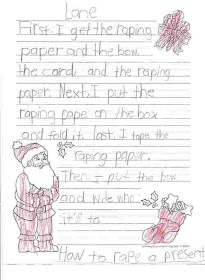 Lane
First I get the raping
paper and the bow.
the card, and the raping
paper. Next, I put the
raping pape on the box
and fold it. last. I tape the
raping paper.
Then I put the bow
and write who
it's to
How to rape a present